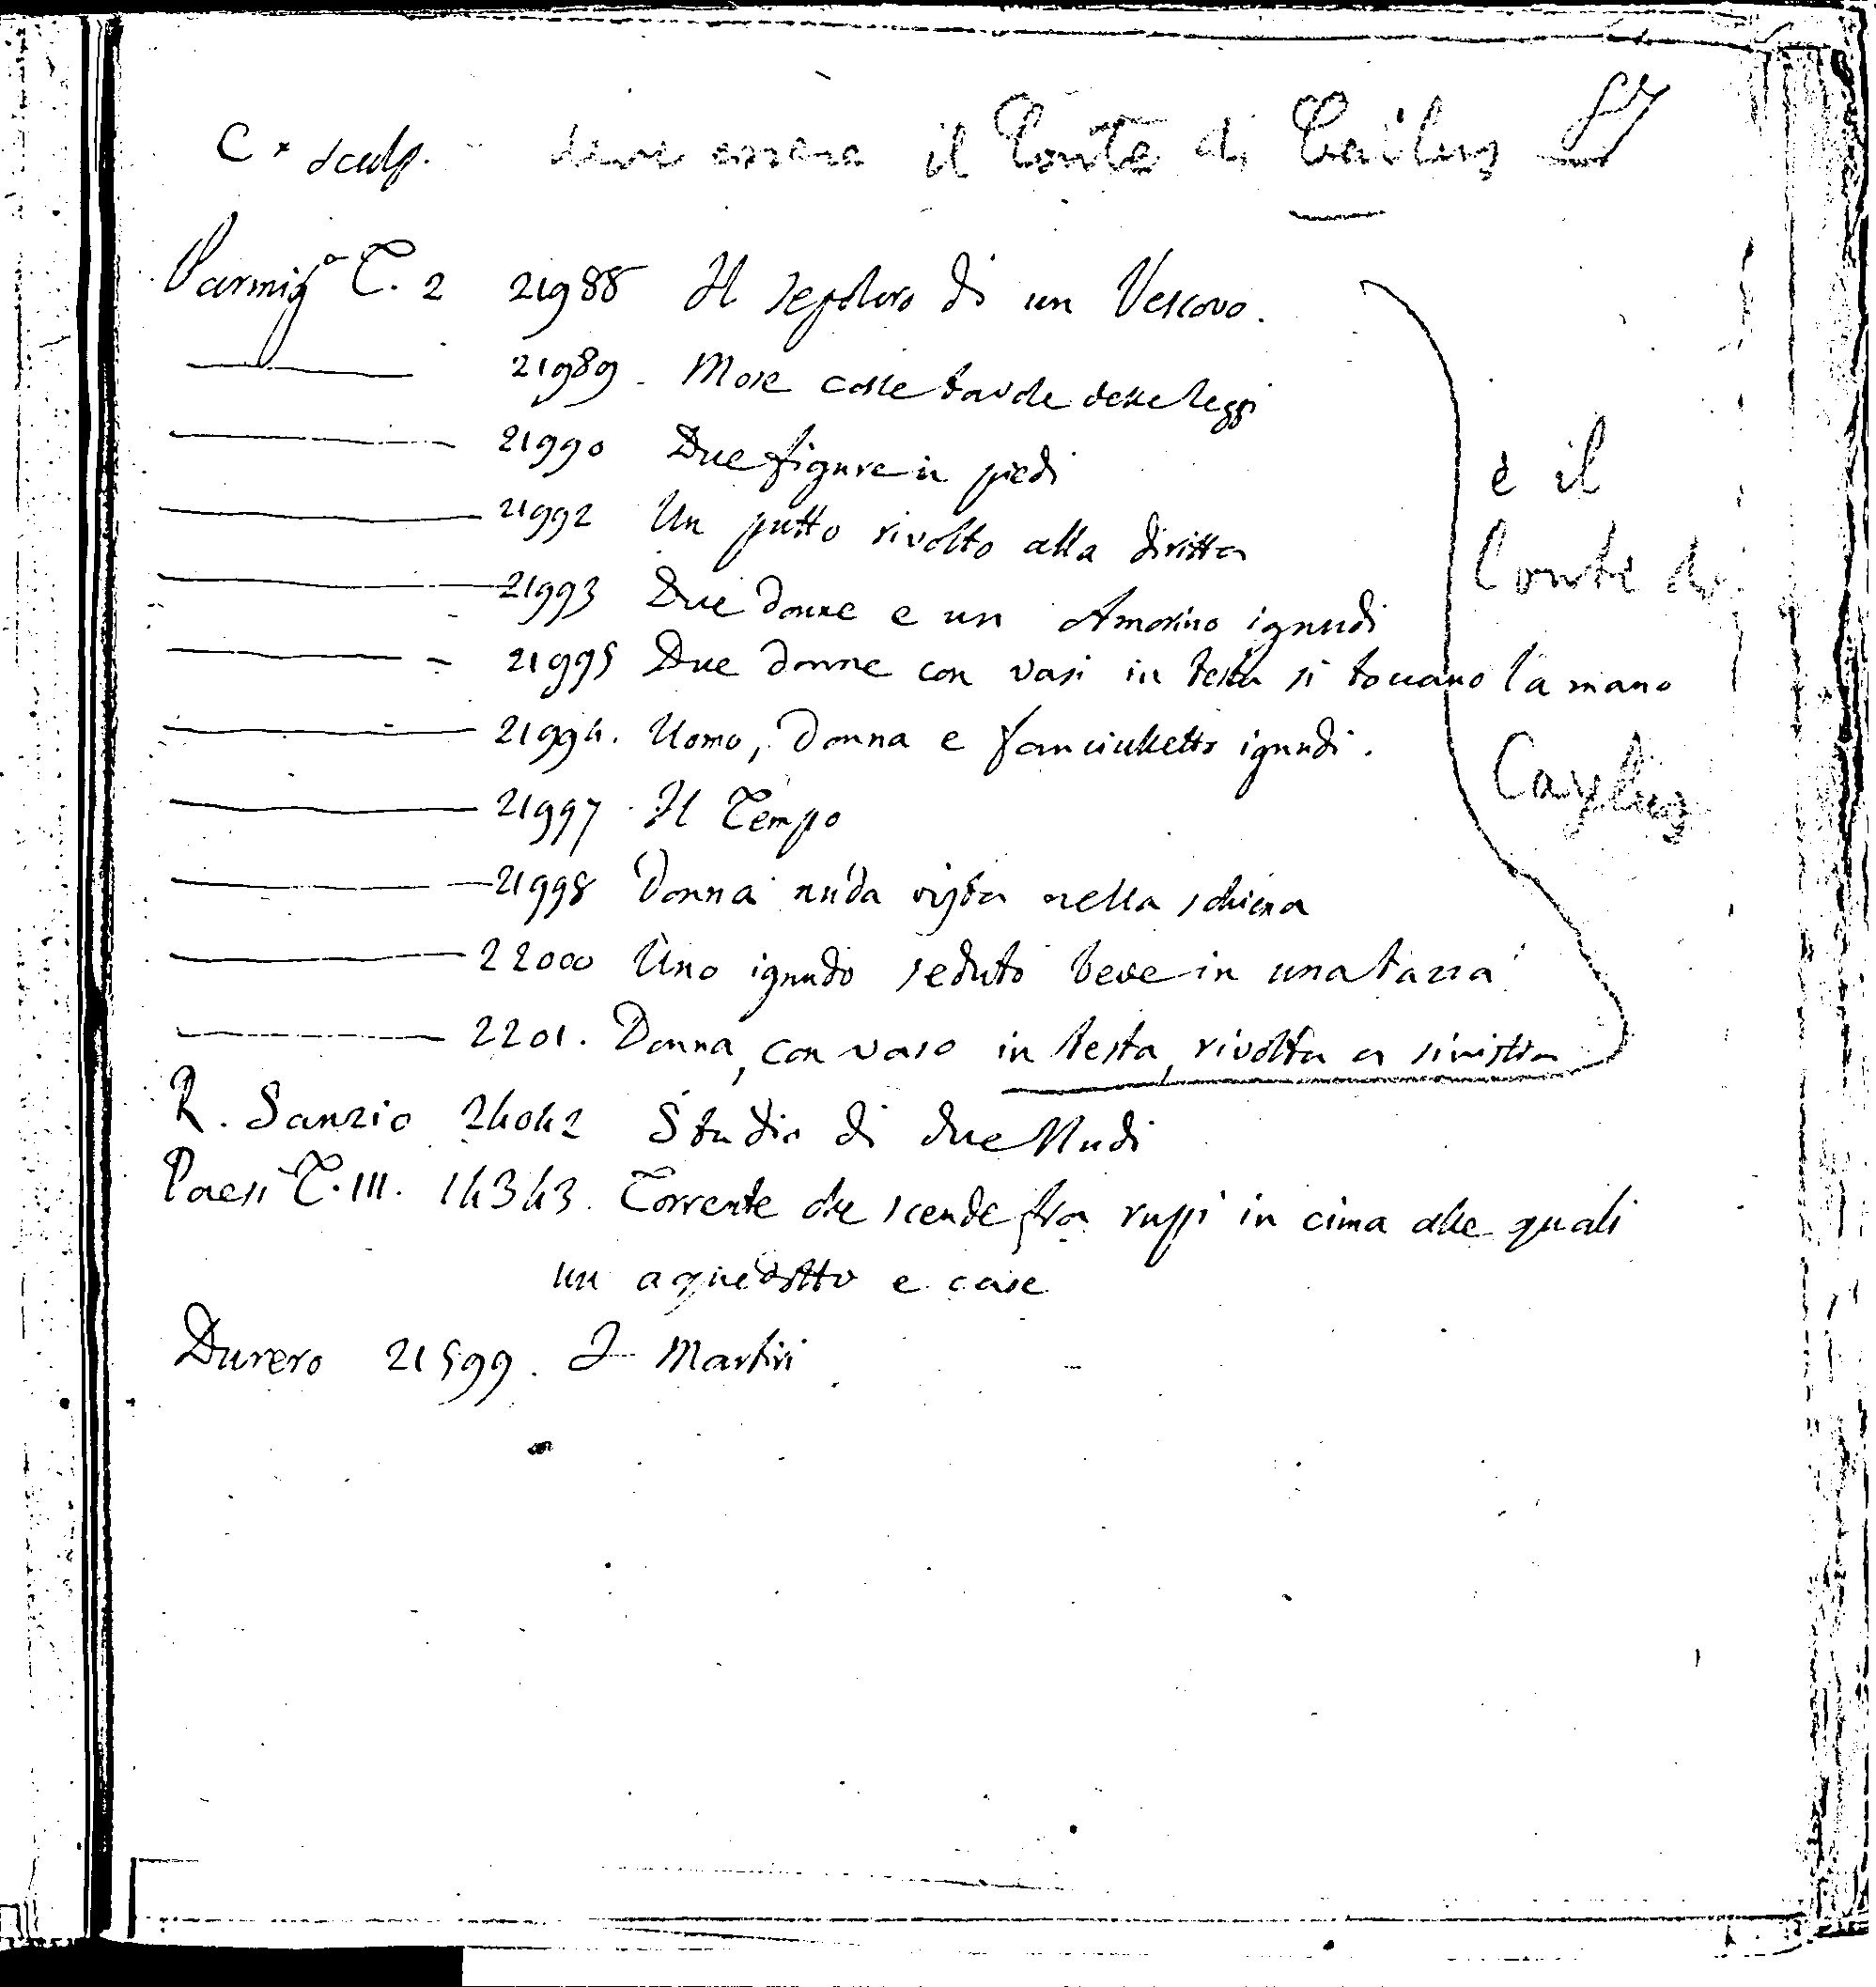 C * sculp. deve essere il Conte di Cailus 57
Parmigº T. 2 21988 Il sepolcro di un Vescovo.
21989. Mosè colle tavole delle leggi
21990 Due figure in piedi
21992 Un putto rivolto alla diritta
21993 Due donne e un Amorino ignudi
21995 Due donne con vasi in testa si toccano la mano
21994. Uomo, donna e fanciulletto ignudi.
21997 Il Tempo
21998 Donna nuda vista nella schiena
22000 Uno ignudo seduto beve in una tazza
2201. Donna, con vaso in testa, rivolta a sinistra
è il
Conte di
Caylus
R. Sanzio 24042 Studio di due Nudi
Paesi T. III. 14343. Torrente che scende fra rupi in cima alle quali
un aquedotto e case
Durero 21599. I Martiri